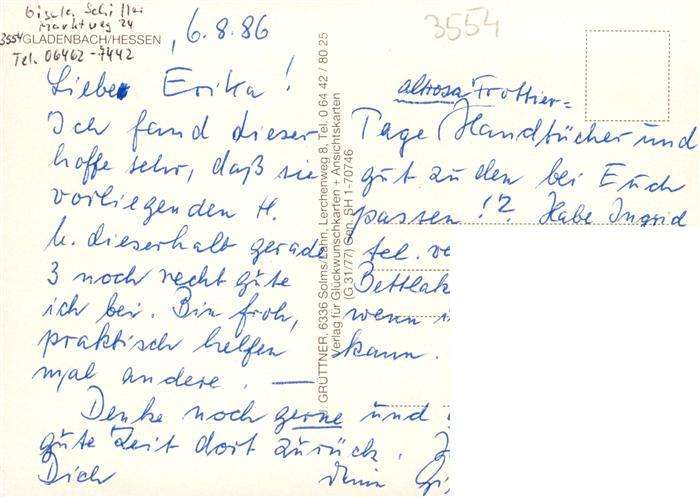 Gisela Schiller
Marktweg 24
3554 GLADENBACH/HESSEN
Tel. 06462-7442
6.8.86
3554
Liebe Erika!
altrosa Frottier=
Ich fand dieser Tage Handtücher und
hoffe sehr, daß sie gut zu den bei Euch
vorliegenden H. passen!? Habe Ingrid
h. dieserhalb gerade tel.
3 noch recht gute Bettlak
ich bei. Bin froh, wenn
praktisch helfen kann.
mal andere. —
Denke noch gerne und
gute Zeit dort zurück.
Dich deine Gi
GRÜTTNER, 6336 Solms/Lahn, Lerchenweg 8, Tel. 0 64 42 / 80 25
Verlag für Glückwunschkarten + Ansichtskarten
(G 31/77) Gen. SH 1-70746